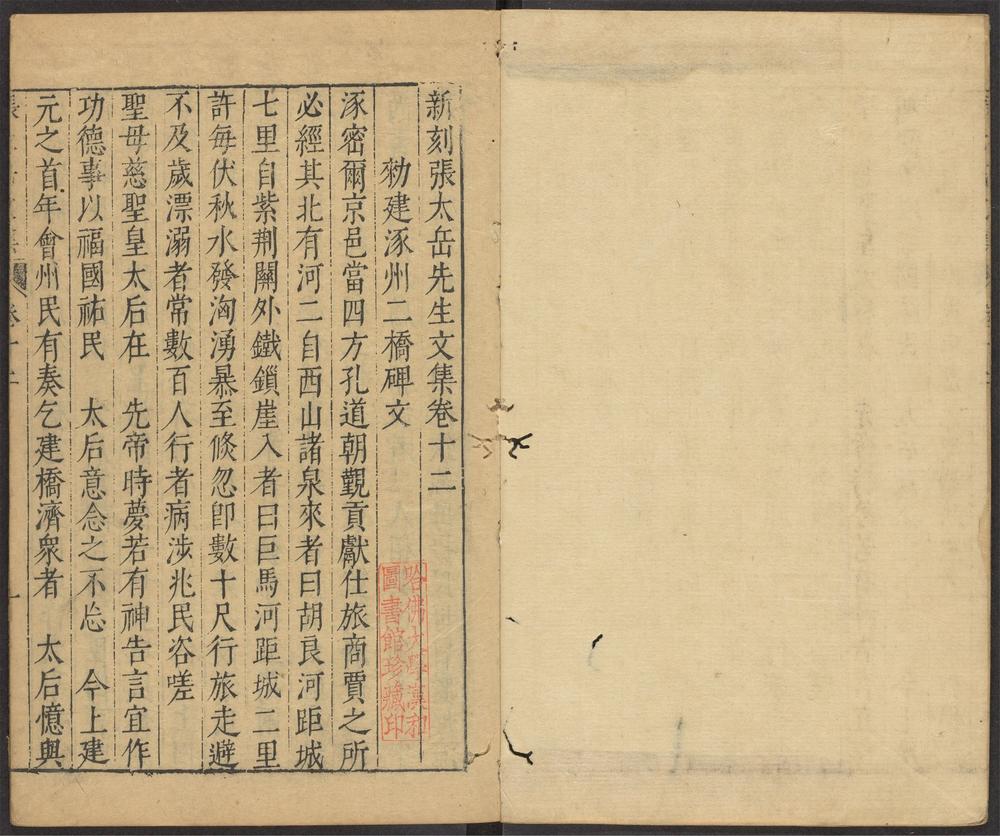 新刻張太岳先生文集卷十二
勑建涿州二橋碑文
涿密爾京邑當四方孔道朝覲貢獻仕旅商賈之所
必經其北有河二自西山諸泉來者曰胡良河距城
七里自紫荆關外鐵鎖崖入者曰巨馬河距城二里
許每伏秋水發洶湧暴至倐忽卽數十尺行旅走避
不及歲漂溺者常數百人行者病涉兆民咨嗟
聖母慈聖皇太后在 先帝時夢若有神告言宜作
功德事以福國祐民 太后意念之不忘 今上建
元之首年會州民有奏乞建橋濟衆者 太后憶與
卷十二
一
哈佛大學漢和
圖書館珍藏印